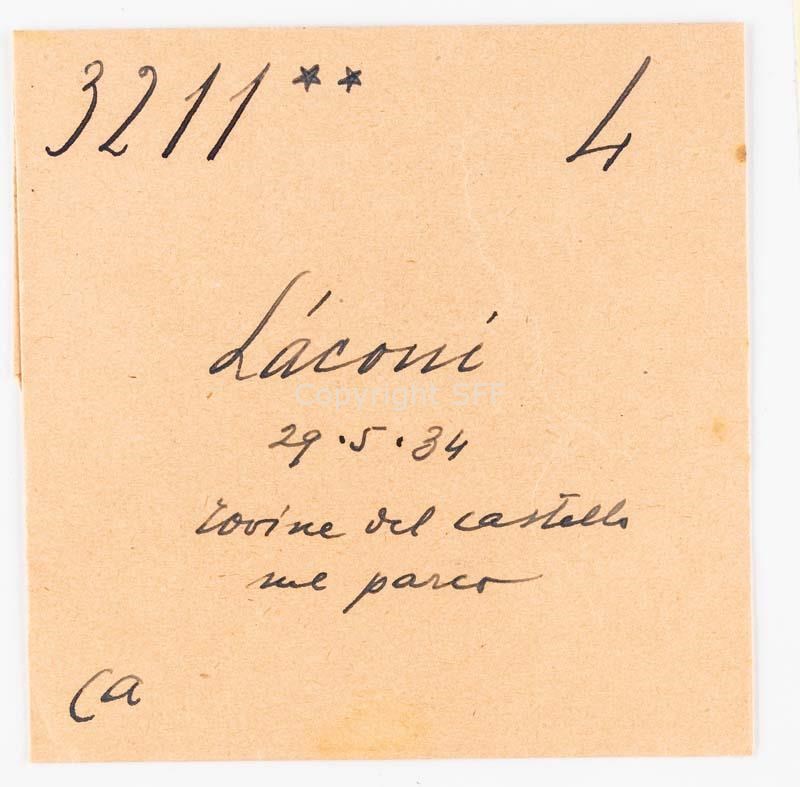 3211** 4
Láconi
Copyright SFF
29.5.34
rovine del castello
nel parco
Ca